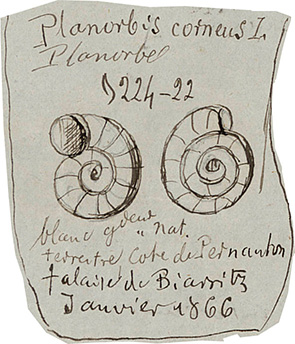 Planorbis corneus L.
Planorbe
224-22
blanc gdeur nat.
terrestre Cote de Pernauton
falaise de Biarritz
Janvier 1866